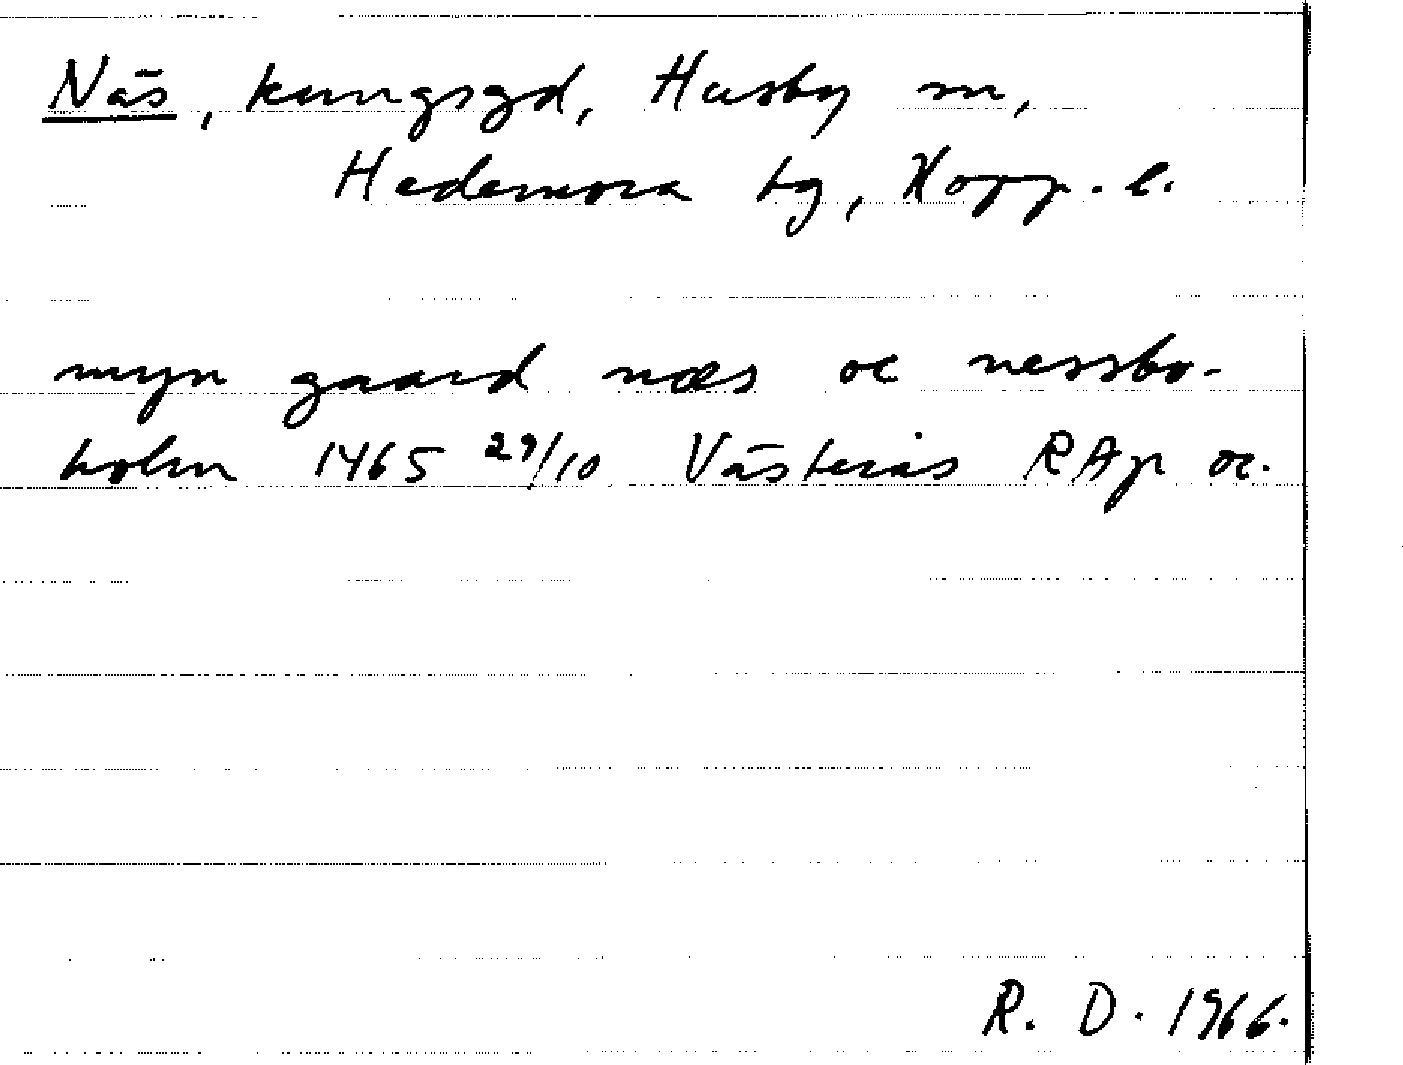 Näs, kungsgd, Husby sn,
Hedemora tg, Kopp. l.
myn gaard næs oc nessbo-
holm 1465 29/10 Västerås RAp or.
R. D. 1966.